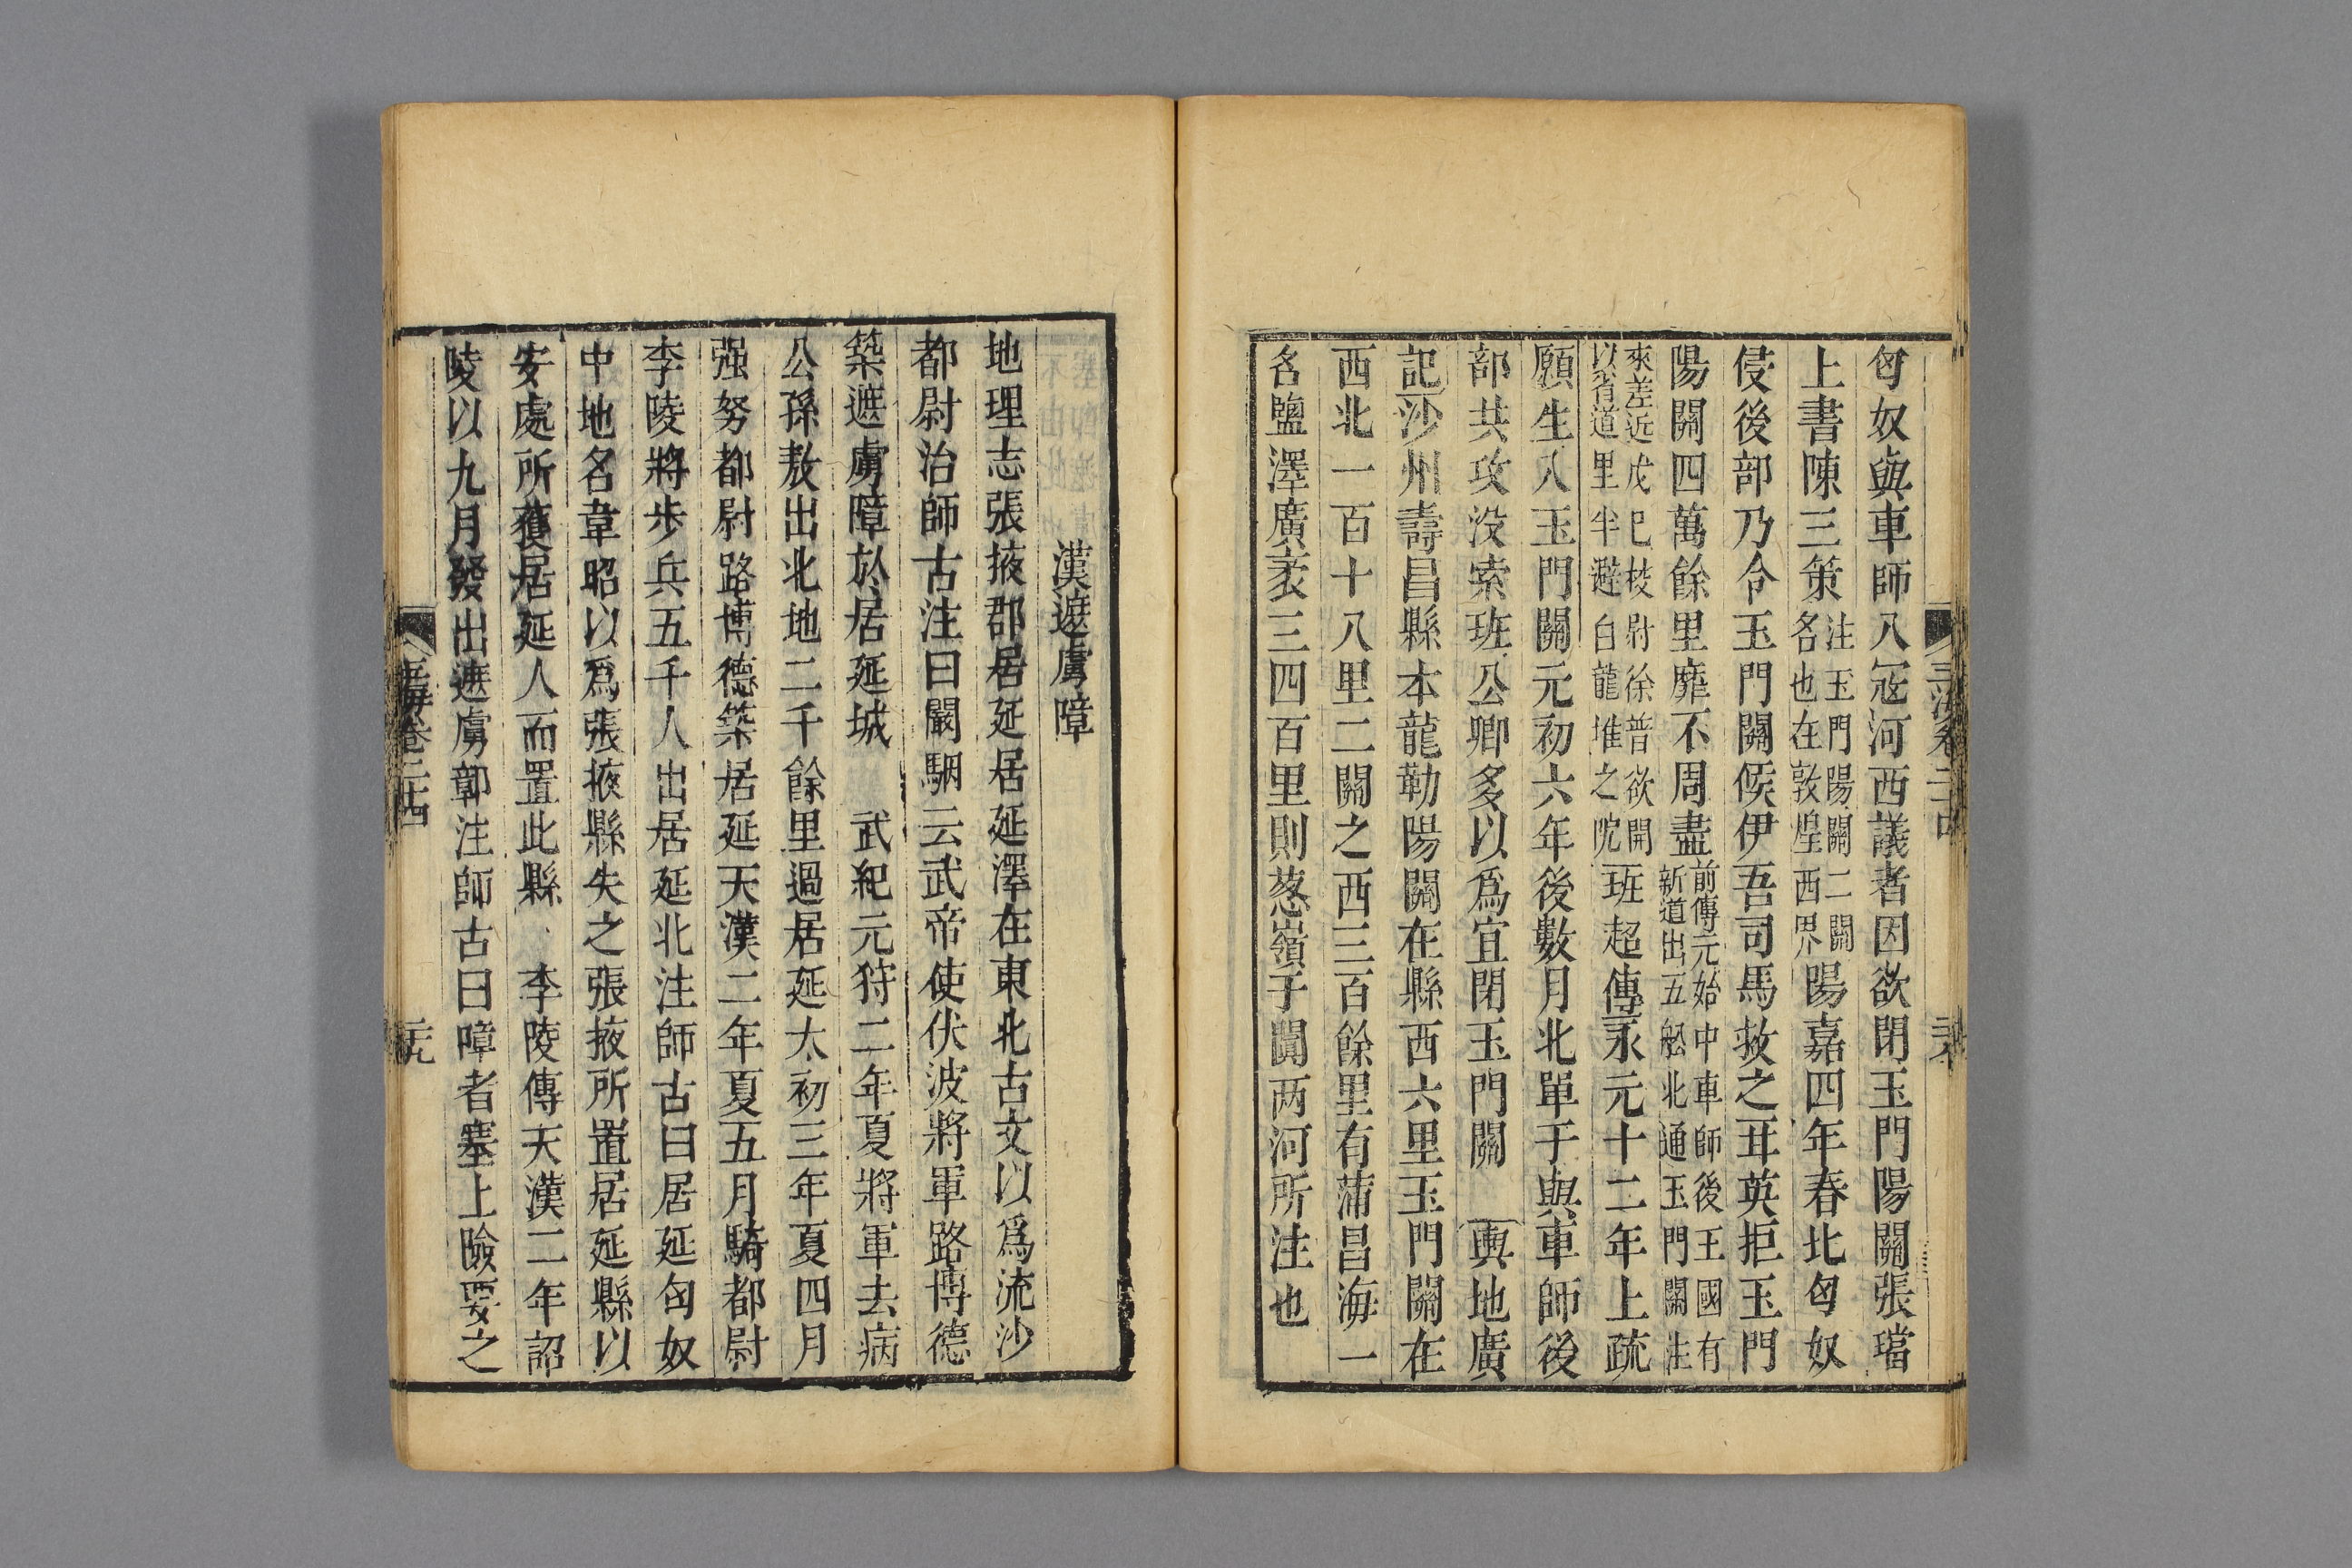 匈奴與車師入冦河西議者因欲閉玉門陽關張璫
上書陳三策注玉門陽關二關名也在敦煌西界陽嘉四年春北匈奴
侵後部乃令玉門關候伊吾司馬救之耳英拒玉門
陽關四萬餘里靡不周盡前傳元始中車師後王國有新道出五船北通玉門關注
來差近戊巳校尉徐普欲開以省道里半避白龍堆之阸班超傳永元十二年上疏
願生入玉門關元初六年後數月北單于與車師後
部共攻没索班公卿多以爲宜閉玉門關 輿地廣
記沙州壽昌縣本龍勒陽關在縣西六里玉門關在
西北一百十八里二關之西三百餘里有蒲昌海一
名鹽澤廣袤三四百里則葱嶺于闐两河所注也
玉海卷二十四
漢遮虜障
地理志張掖郡居延居延澤在東北古文以爲流沙
都尉治師古注曰闞駰云武帝使伏波將軍路博德
築遮虜障於居延城 武紀元狩二年夏將軍去病
公孫敖出北地二千餘里過居延太初三年夏四月
强弩都尉路博德築居延天漢二年夏五月騎都尉
李陵將步兵五千人出居延北注師古曰居延匈奴
中地名韋昭以爲張掖縣失之張掖所置居延縣以
安處所獲居延人而置此縣 李陵傳天漢二年詔
陵以九月發出遮虜鄣注師古曰障者塞上險要之
玉海卷二十四 二十九